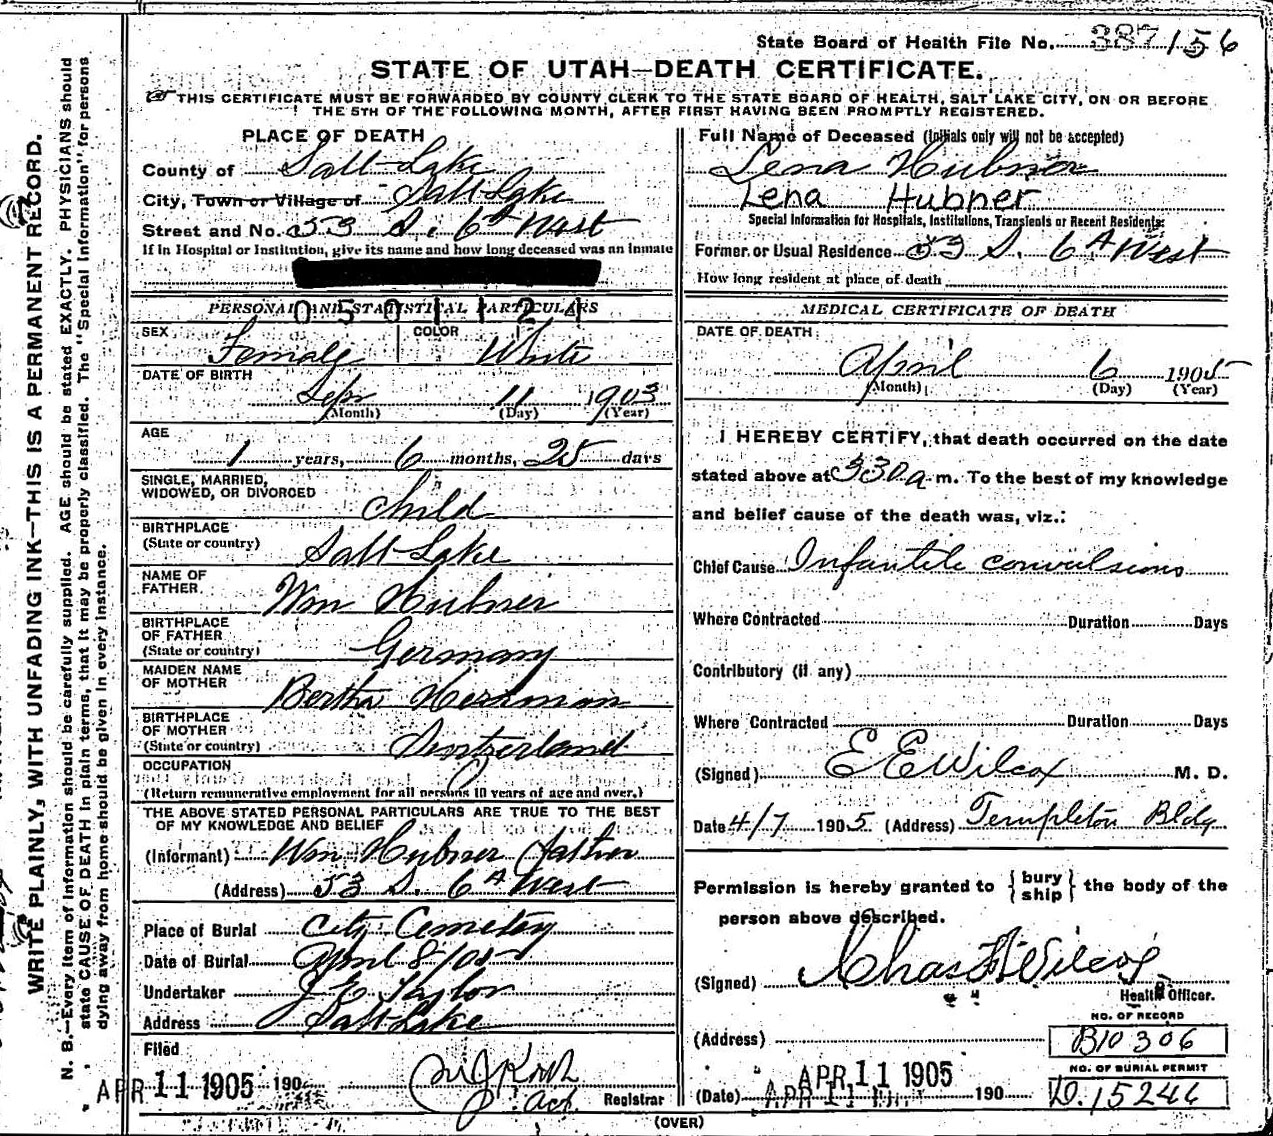 State Board of Health File No. 387156
STATE OF UTAH—DEATH CERTIFICATE.
THIS CERTIFICATE MUST BE FORWARDED BY COUNTY CLERK TO THE STATE BOARD OF HEALTH, SALT LAKE CITY, ON OR BEFORE
THE 5TH OF THE FOLLOWING MONTH, AFTER FIRST HAVING BEEN PROMPTLY REGISTERED.
WRITE PLAINLY, WITH UNFADING INK—THIS IS A PERMANENT RECORD.
N. B.—Every item of information should be carefully supplied. AGE should be stated EXACTLY. PHYSICIANS should
state CAUSE OF DEATH in plain terms, that it may be properly classified. The "Special Information" for persons
dying away from home should be given in every instance.
PLACE OF DEATH
County of Salt Lake
City, Town or Village of Salt Lake
Street and No. 53 S. 6th West
If in Hospital or Institution, give its name and how long deceased was an inmate
PERSONAL AND STATISTICAL PARTICULARS
0501121
SEX Female COLOR White
DATE OF BIRTH
Sep 11 1903
(Month) (Day) (Year)
AGE
1 years, 6 months, 25 days
SINGLE, MARRIED,
WIDOWED, OR DIVORCED child
BIRTHPLACE
(State or country) Salt Lake
NAME OF
FATHER Wm Hubner
BIRTHPLACE
OF FATHER
(State or country) Germany
MAIDEN NAME
OF MOTHER Bertha Herrman
BIRTHPLACE
OF MOTHER
(State or country) Switzerland
OCCUPATION
(Return remunerative employment for all persons 10 years of age and over.)
THE ABOVE STATED PERSONAL PARTICULARS ARE TRUE TO THE BEST
OF MY KNOWLEDGE AND BELIEF
(Informant) Wm Hubner father
(Address) 53 S. 6th West
Place of Burial City Cemetery
Date of Burial April 8/05
Undertaker Taylor
Address Salt Lake
Filed
APR 11 1905 190 Act. Registrar
Full Name of Deceased (Initials only will not be accepted)
Lena Hubner
Lena Hubner
Special Information for Hospitals, Institutions, Transients or Recent Residents:
Former or Usual Residence 53 S. 6th West
How long resident at place of death
MEDICAL CERTIFICATE OF DEATH
DATE OF DEATH
April 6 1905
(Month) (Day) (Year)
I HEREBY CERTIFY, that death occurred on the date
stated above at 530 a m. To the best of my knowledge
and belief cause of the death was, viz.:
Chief Cause Infantile convulsions
Where Contracted Duration Days
Contributory (if any)
Where Contracted Duration Days
(Signed) E E Wilcox M. D.
Date 4/7 1905 (Address) Templeton Bldg
Permission is hereby granted to { bury
ship } the body of the
person above described.
(Signed) Chas F Wilcox
Health Officer.
NO. OF RECORD
(Address) B10306
NO. OF BURIAL PERMIT
APR 11 1905
(Date) APR 11 190 D.15246
(OVER)